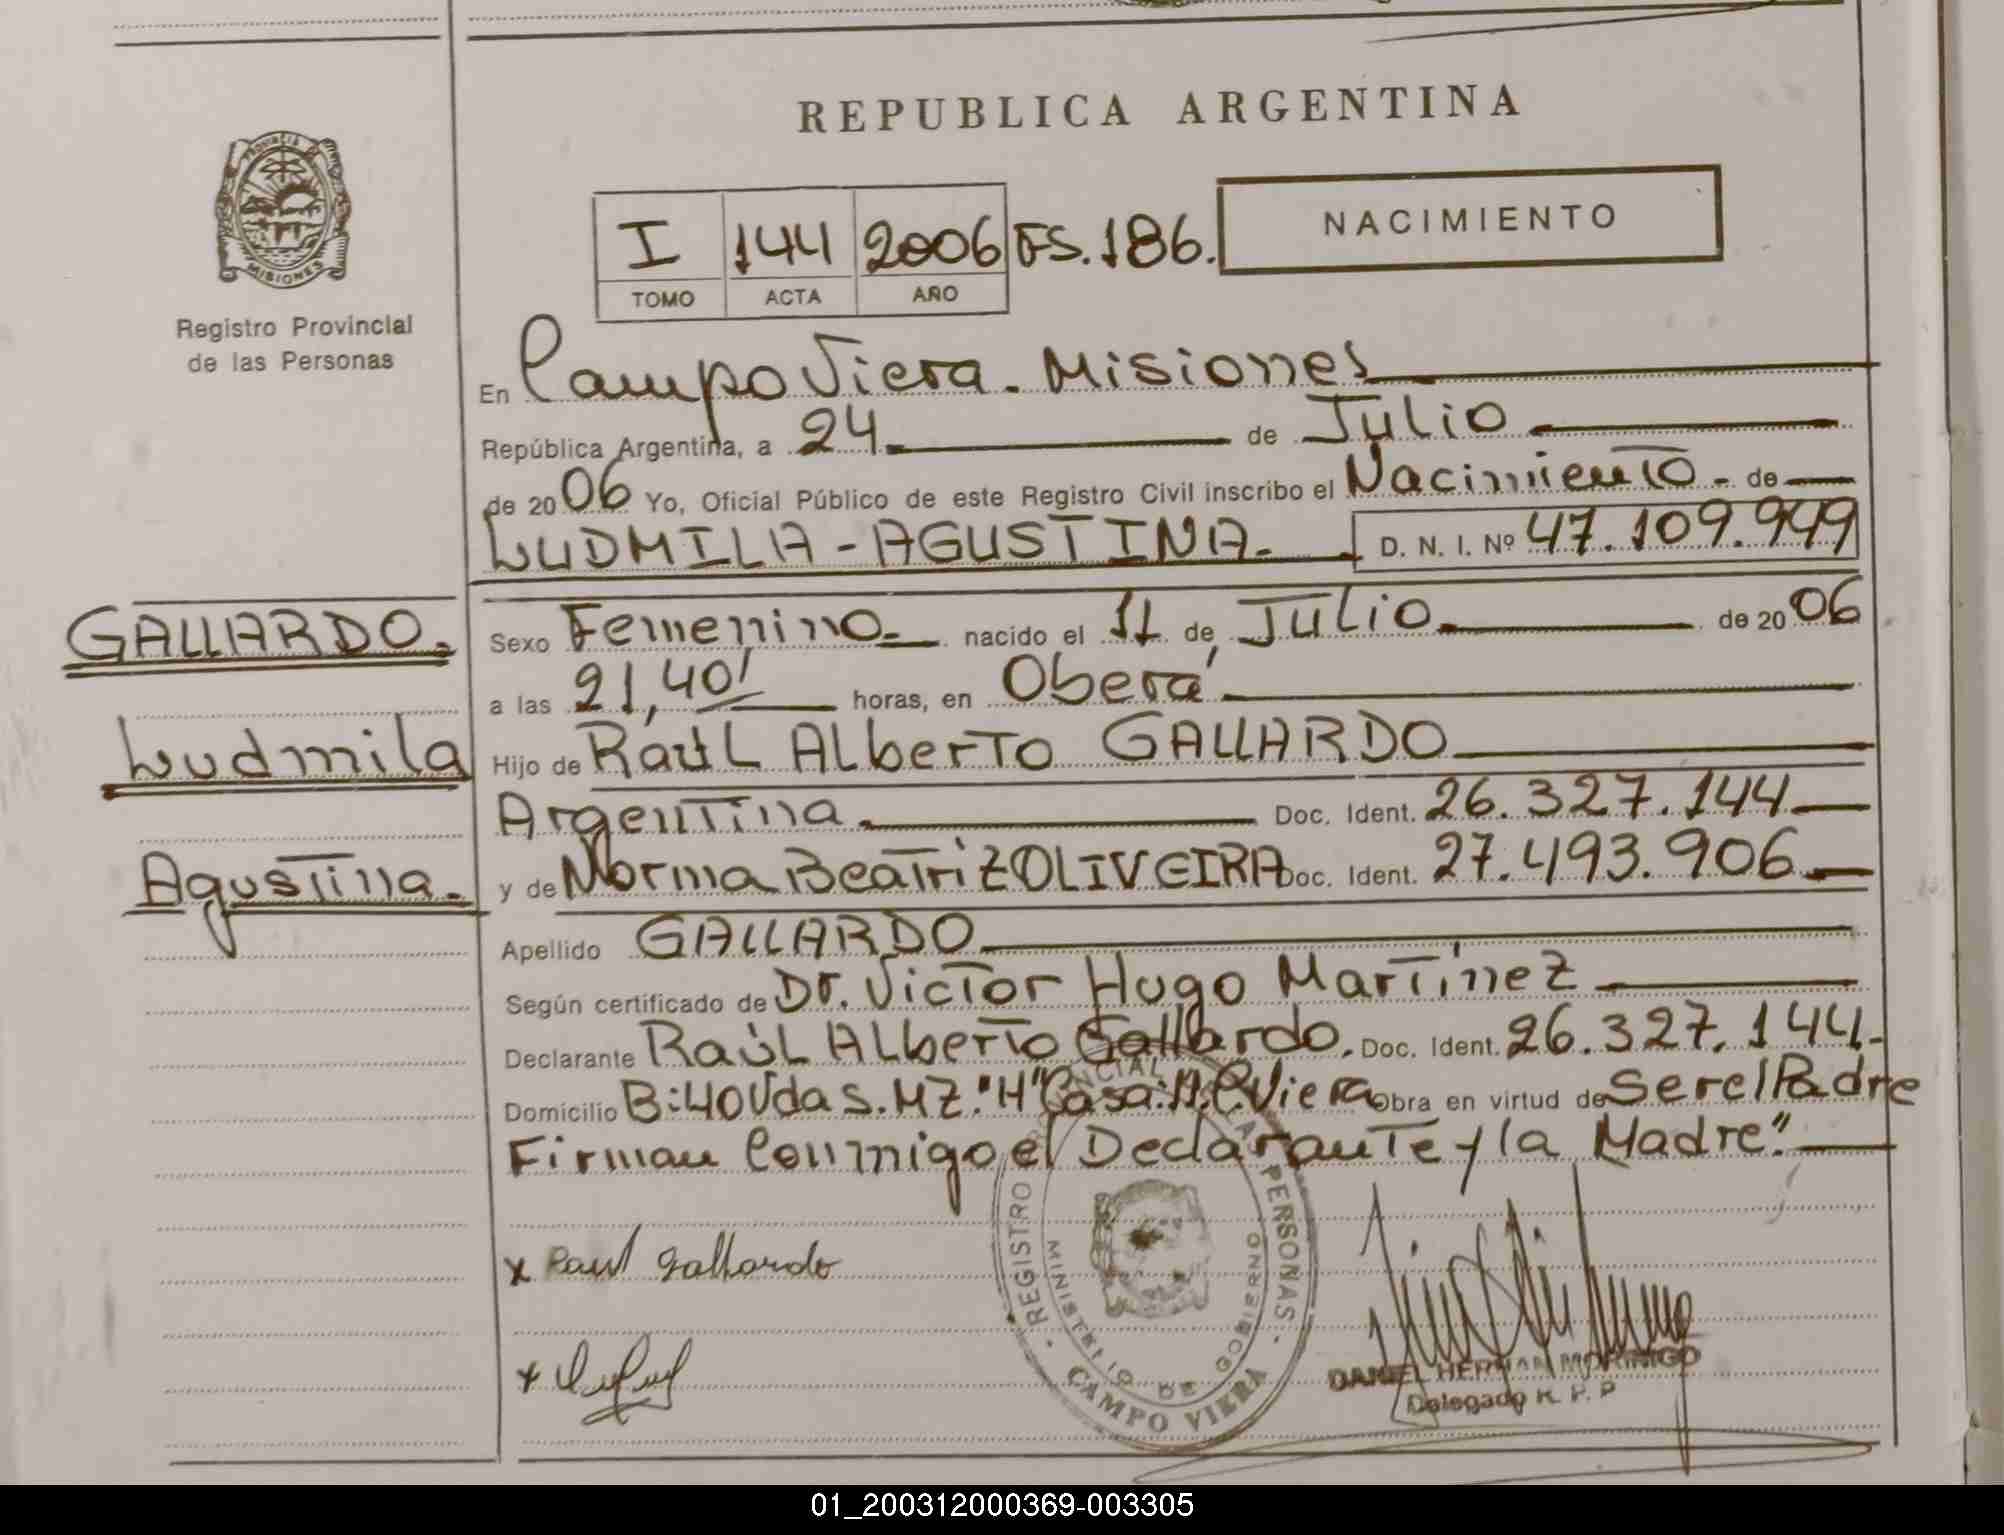 REPUBLICA ARGENTINA
PROVINCIA DE MISIONES
Registro Provincial
de las Personas
I 144 2006 FS. 186.
TOMO ACTA AÑO
NACIMIENTO
En Campo Viera. Misiones
República Argentina, a 24 de Julio
de 2006 Yo, Oficial Público de este Registro Civil inscribo el Nacimiento - de
LUDMILA - AGUSTINA. D. N. I. Nº 47.109.949
GALLARDO.
Ludmila
Agustina.
Sexo Femenino nacido el 11 de Julio de 2006
a las 21,40' horas, en Oberá
Hijo de Raúl Alberto GALLARDO
Argentina. Doc. Ident. 26.327.144
y de Norma Beatriz OLIVEIRA Doc. Ident. 27.493.906
Apellido GALLARDO
Según certificado de Dr. Victor Hugo Martínez
Declarante Raúl Alberto Gallardo. Doc. Ident. 26.327.144.
Domicilio B: 40 Vdas. MZ. "H" Casa: C. Viera Obra en virtud de Ser el Padre
Firman Conmigo el Declarante y la Madre".
x Raul Gallardo
x
REGISTRO PROVINCIAL DE LAS PERSONAS
MINISTERIO DE GOBIERNO
CAMPO VIERA
DANIEL HERNAN MORINIGO
Delegado R. P. P
01_200312000369-003305